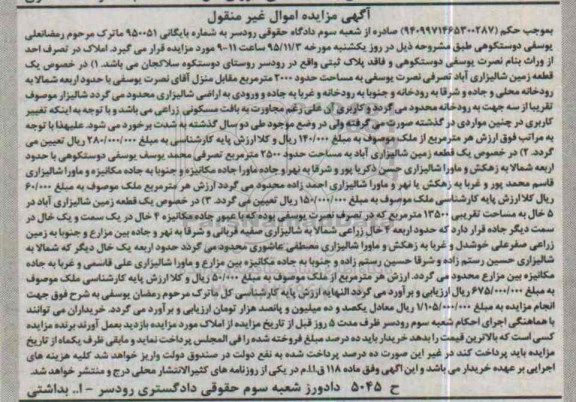 آگهی مزایده اموال غیر منقول
بموجب حکم (۹۴۰۹۹۷۱۴۶۵۳۰۰۲۸۷) صادره از شعبه سوم دادگاه حقوقی رودسر به شماره بایگانی ۹۵۰۰۵۱ ماترک مرحوم رمضانعلی
یوسفی دوستکوهی طبق مشروحه ذیل در روز یکشنبه مورخه ۹۵/۱۱/۳ ساعت ۱۱–۹ مورد مزایده قرار می گیرد. املاک در تصرف احد
از وراث بنام نصرت یوسفی دوستکوهی و فاقد پلاک ثبتی واقع در رودسر روستای دوستکوه سلاکجان می باشد. ۱) در خصوص یک
قطعه زمین شالیزاری آباد تصرفی نصرت یوسفی به مساحت حدود ۲۰۰۰ مترمربع مقابل منزل آقای نصرت یوسفی با حدود اربعه شمالا به
رودخانه محلی و جاده و شرقا به رودخانه و جنوبا به رودخانه و غربا به جاده و ورودی به اراضی شالیزاری محدود می گردد شالیزار موصوف
تقریبا از سه جهت به رودخانه محدود می گردد و کاربری آن علی رغم مجاورت به بافت مسکونی زراعی می باشد و با توجه به اینکه تغییر
کاربری در چنین مواردی در گذشته صورت می گرفته ولی در وضع موجود طی دو سال گذشته به شدت برخورد می شود. علیهذا با توجه
به مراتب فوق ارزش هر مترمربع از ملک موصوف به مبلغ ۱۴۰/۰۰۰ ریال و کلا ارزش پایه کارشناسی به مبلغ ۲۸۰/۰۰۰/۰۰۰ ریال تعیین می
گردد. ۲) در خصوص یک قطعه زمین شالیزاری آباد به مساحت حدود ۲۵۰۰ مترمربع تصرفی محمد یوسف یوسفی دوستکوهی با حدود
اربعه شمالا به زهکش و ماورا شالیزاری حسن ذکریا پور و شرقا به نهر و جاده ماورا جاده مکانیزه و جنوبا به جاده مکانیزه و ماورا شالیزاری
قاسم محمد پور و غربا به زهکش یا نهر و ماورا شالیزاری احمد زاده محدود می گردد ارزش هر مترمربع ملک موصوف به مبلغ ۶۰/۰۰۰
ریال کلا ارزش پایه کارشناسی ملک موصوف به مبلغ ۱۵۰/۰۰۰/۰۰۰ ریال تعیین می گردد. ۳) در خصوص یک قطعه زمین شالیزاری آباد در
۵ خال به مساحت تقریبی ۱۳۵۰۰ مترمربع که در تصرف نصرت یوسفی بوده که با عبور جاده مکانیزه ۴ خال در یک سمت و یک خال در
سمت دیگر جاده قرار دارد که حدود اربعه ۴ خال زراعی شمالا به شالیزاری صفیه قربانی و شرقا به نهر و جاده بین مزارع و جنوبا به زمین
زراعی صفرعلی خوشدل و غربا به زهکش و ماورا شالیزاری مصطفی عاشوری محدود می گردد حدود اربعه یک خال دیگر که شمالا به
شالیزاری حسین رستم زاده و شرقا حسین رستم زاده و جنوبا به جاده مکانیزه بین مزارع و ماورا شالیزاری علی قاسمی و غربا به جاده
مکانیزه بین مزارع محدود می گردد. ارزش هر مترمربع از ملک موصوف به مبلغ ۵۰/۰۰۰ ریال و کلا ارزش پایه کارشناسی ملک موصوف
به مبلغ ۶۷۵/۰۰۰/۰۰۰ ریال ارزیابی و برآورد می گردد النهایه ارزش پایه کارشناسی کل ماترک مرحوم رمضان یوسفی به شرح فوق جهت
انجام مزایده به مبلغ ۱/۱۰۵/۰۰۰/۰۰۰ ریال معادل یکصد و ده میلیون و پانصد هزار تومان ارزیابی و برآورد می گردد. خریداران می توانند
با هماهنگی اجرای احکام شعبه سوم رودسر ظرف مدت ۵ روز قبل از تاریخ مزایده از املاک مورد مزایده بازدید بعمل آورند برنده مزایده
کسی است که بالاترین قیمت را بدهد خریدار باید ده درصد مبلغ فروخته شده را فی المجلس پرداخت نماید و مابقی ظرف یکماه از تاریخ
مزایده باید پرداخت کند در غیر این صورت ده درصد پرداخت شده به نفع دولت در صندوق دولت واریز خواهد شد کلیه هزینه های
اجرایی بر عهده خریدار می باشد و این آگهی وفق ماده ۱۱۸ ق.ا.م در یکی از روزنامه های کثیرالانتشار محلی درج و منتشر خواهد شد.
ح ۵۰۴۵ دادورز شعبه سوم حقوقی دادگستری رودسر – ا... بداشتی